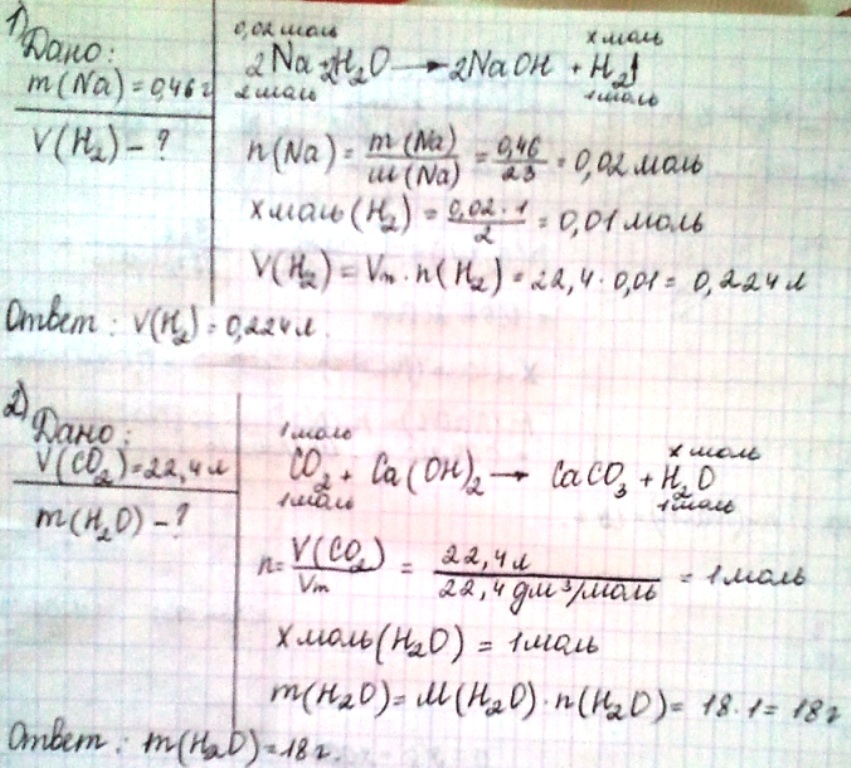 1)
Дано:
m(Na) = 0,46 г
V(H₂) - ?
0,02 моль x моль
2Na + 2H₂O → 2NaOH + H₂↑
2 моль 1 моль
n(Na) = m(Na)/M(Na) = 0,46/23 = 0,02 моль
x моль (H₂) = 0,02 · 1/2 = 0,01 моль
V(H₂) = Vm · n(H₂) = 22,4 · 0,01 = 0,224 л
Ответ: V(H₂) = 0,224 л.
2)
Дано:
V(CO₂) = 22,4 л
m(H₂O) - ?
1 моль x моль
CO₂ + Ca(OH)₂ → CaCO₃ + H₂O
1 моль 1 моль
n = V(CO₂)/Vm = 22,4 л/22,4 дм³/моль = 1 моль
x моль (H₂O) = 1 моль
m(H₂O) = M(H₂O) · n(H₂O) = 18 · 1 = 18 г
Ответ: m(H₂O) = 18 г.